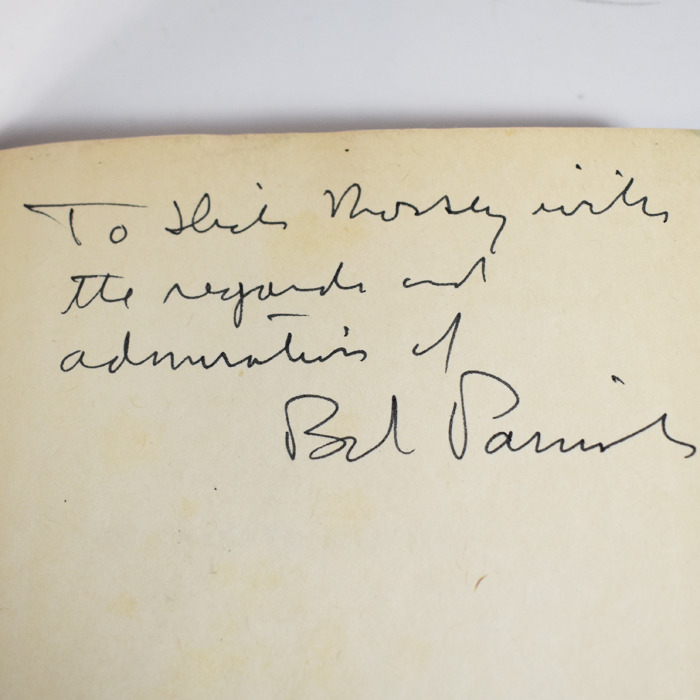 To Mossey with
the regards and
admiration of
Bob Parrish